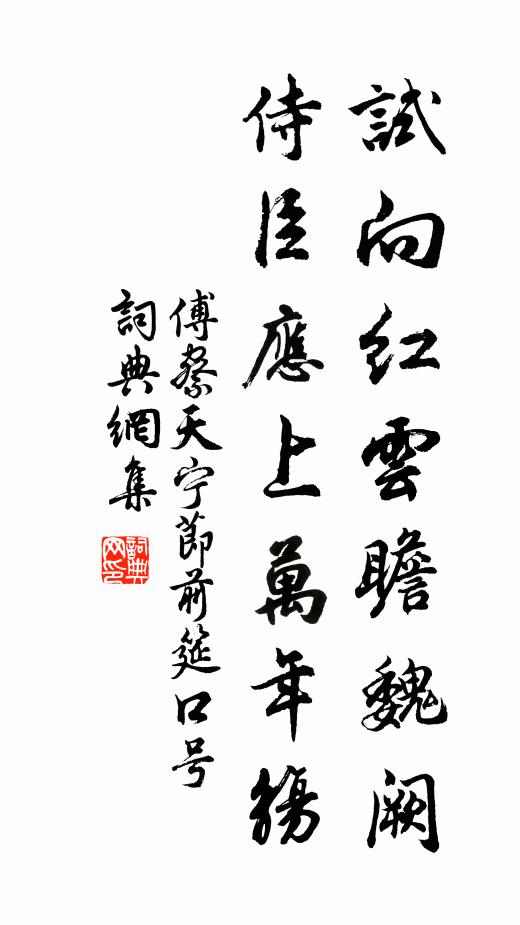 試向紅雲瞻魏闕
侍臣應上萬年觴
傅察天宁節前筵口号
詞典網集
詞典网印